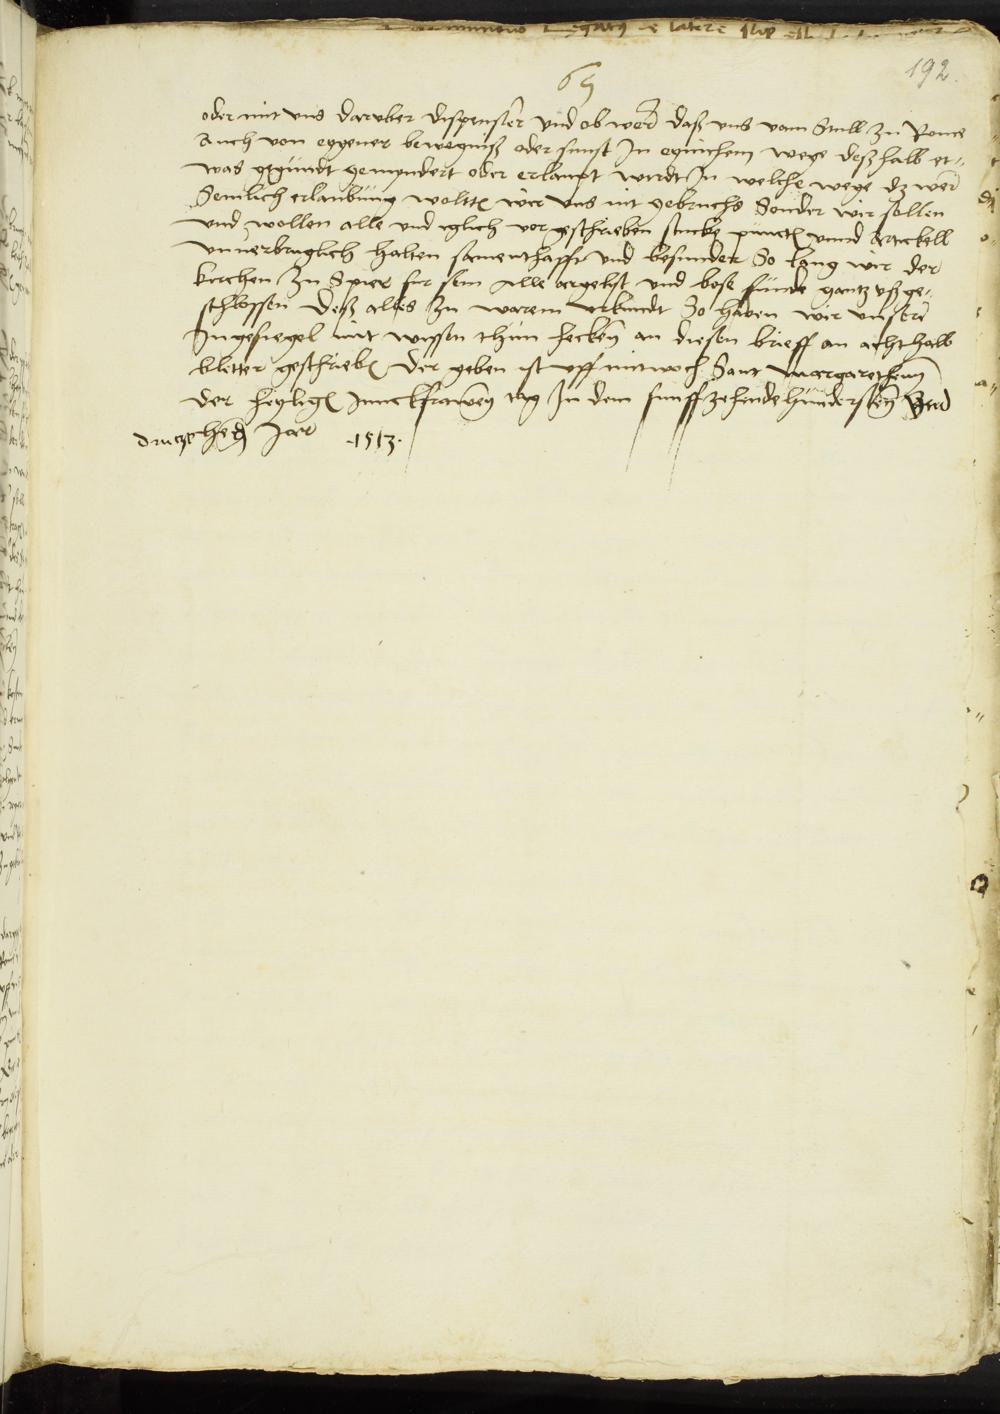 192.
65
oder mit vns daruber dispensier vnd ob wer daß vns vom Stull zu Rome
Auch von eygener bewegniß oder sunst In eynichem wege deßhalb et-
was gegundt gemyndert oder erlaupt wurdt In welche wege dz wer
Semlich erlaubung woltt wir vns nit gebruchs Sonder wir sollen
vnd wollen alle vnd iglich vorgeschrieben stucke punct vnnd Artickell
vnuerbruglich halten samenthafft vnd besunder So lang wir der
kirchen zu Spier fur sein alle argelist vnd bose funde gantz vßge-
schlossen Deß alles zu warem vrkundt So haben wir vnser
Ingesiegel mit wissen thun hecken an diesen brieff an achthalb
bletter geschrieb Der geben ist vff mitwoch Sant Margarethen
der heylig Junckfrawen tag In dem funffzehendehundersten Vnd
druzehen Jar .1513.